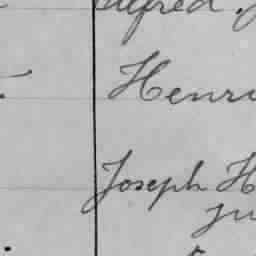 Alfred J
Henri
Joseph H
Ju